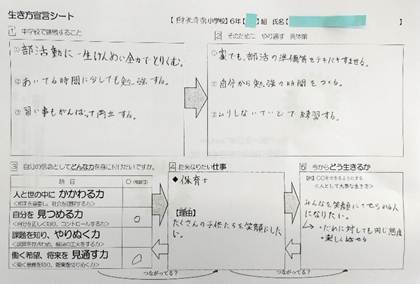 生き方宣言シート
小学校】6年【 】組 氏名【 】
1 中学校で頑張ること
①部活動に一生けんめい全力でとりくむ。
②あいてる時間に少しでも勉強する。
③習い事もがんばって両立する。
2 そのために やり通す 具体策
①家でも、部活の準備等をテキパキすませる。
②自分から勉強の時間をつくる。
③ムリしないていどで練習する。
3 自分の信念としてどんな力を身に付けたいですか。
項目
人と世の中に かかわる力
自分を 見つめる力
○
課題を知り、やりぬく力
働く希望、将来を 見通す力
○
つながってる？
4 将来なりたい仕事
◆保育士
【理由】
たくさんの子供たちを笑顔にしたい。
つながってる？
5 今からどう生きるか
<人として大事な生き方>
みんなを笑顔にしてあげられる人
になりたい。
・だれに対しても同じ態度